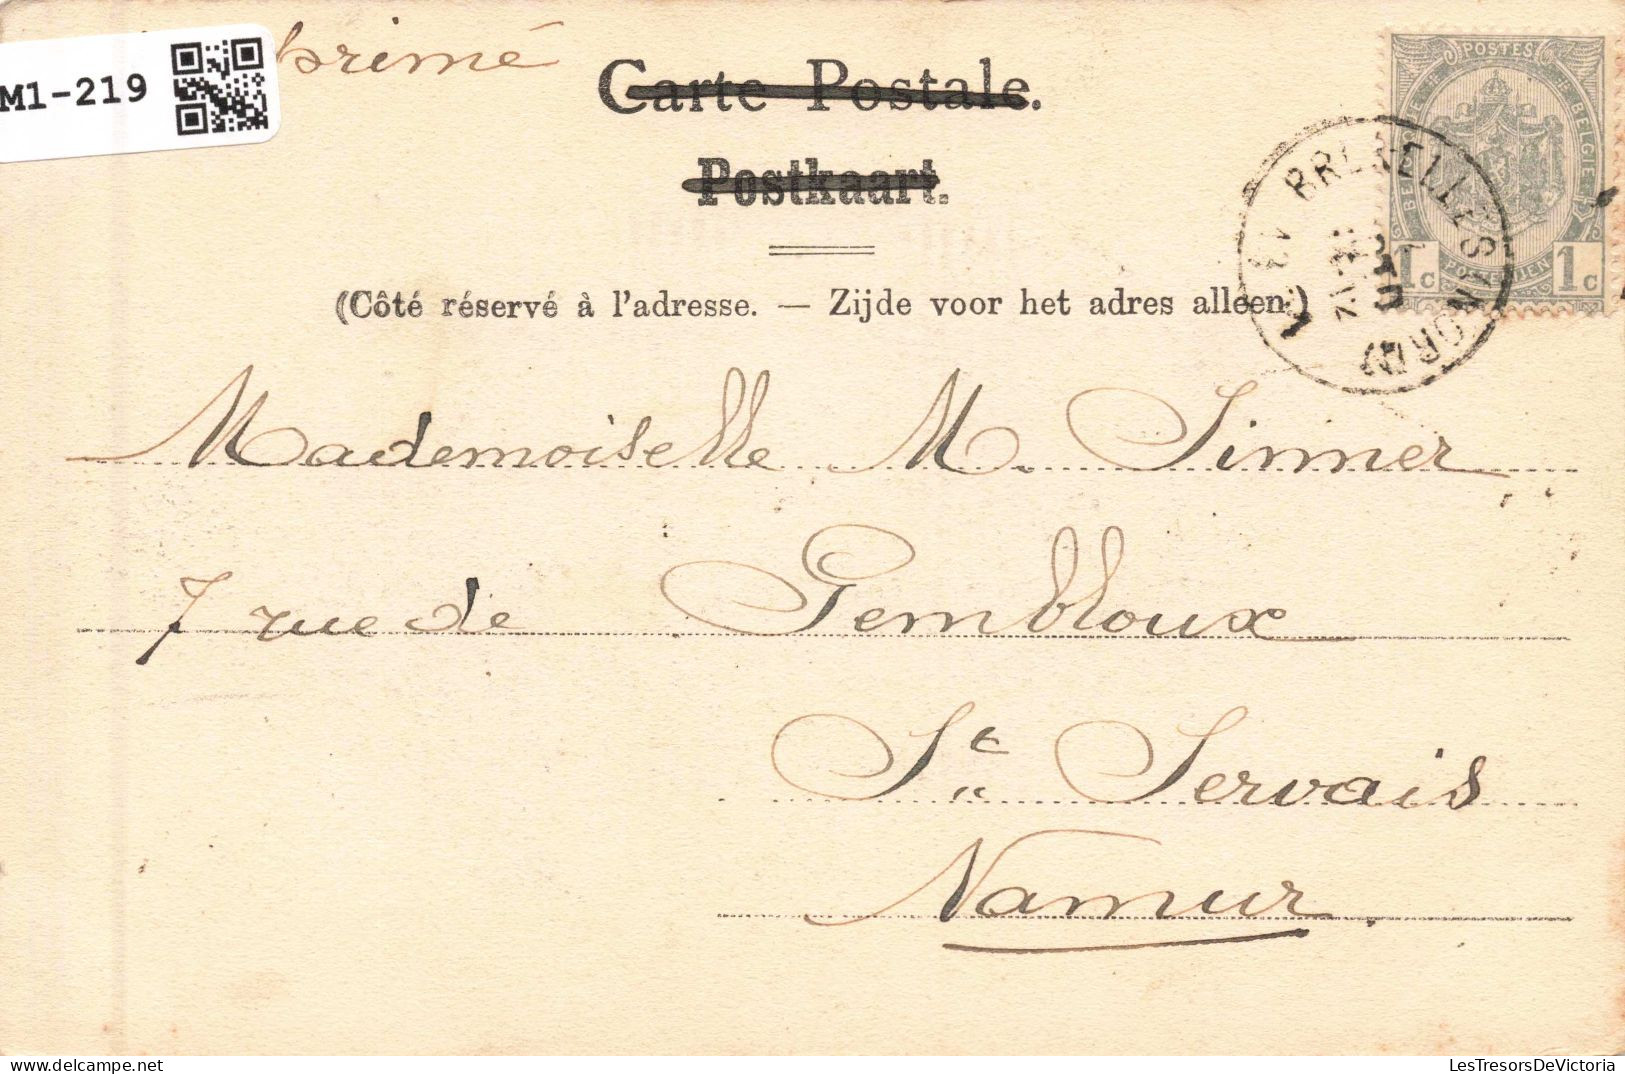 M1-219
Carte Postale.
Postkaart.
(Côté réservé à l'adresse. — Zijde voor het adres alleen.)
POSTES
BELGIQUE
BELGIE
POSTERIJEN
1c 1c
BRUXELLES (NORD)
Mademoiselle M. Sinner
7 rue de Gembloux
St Servais
Namur.
LesTresorsDeVictoria